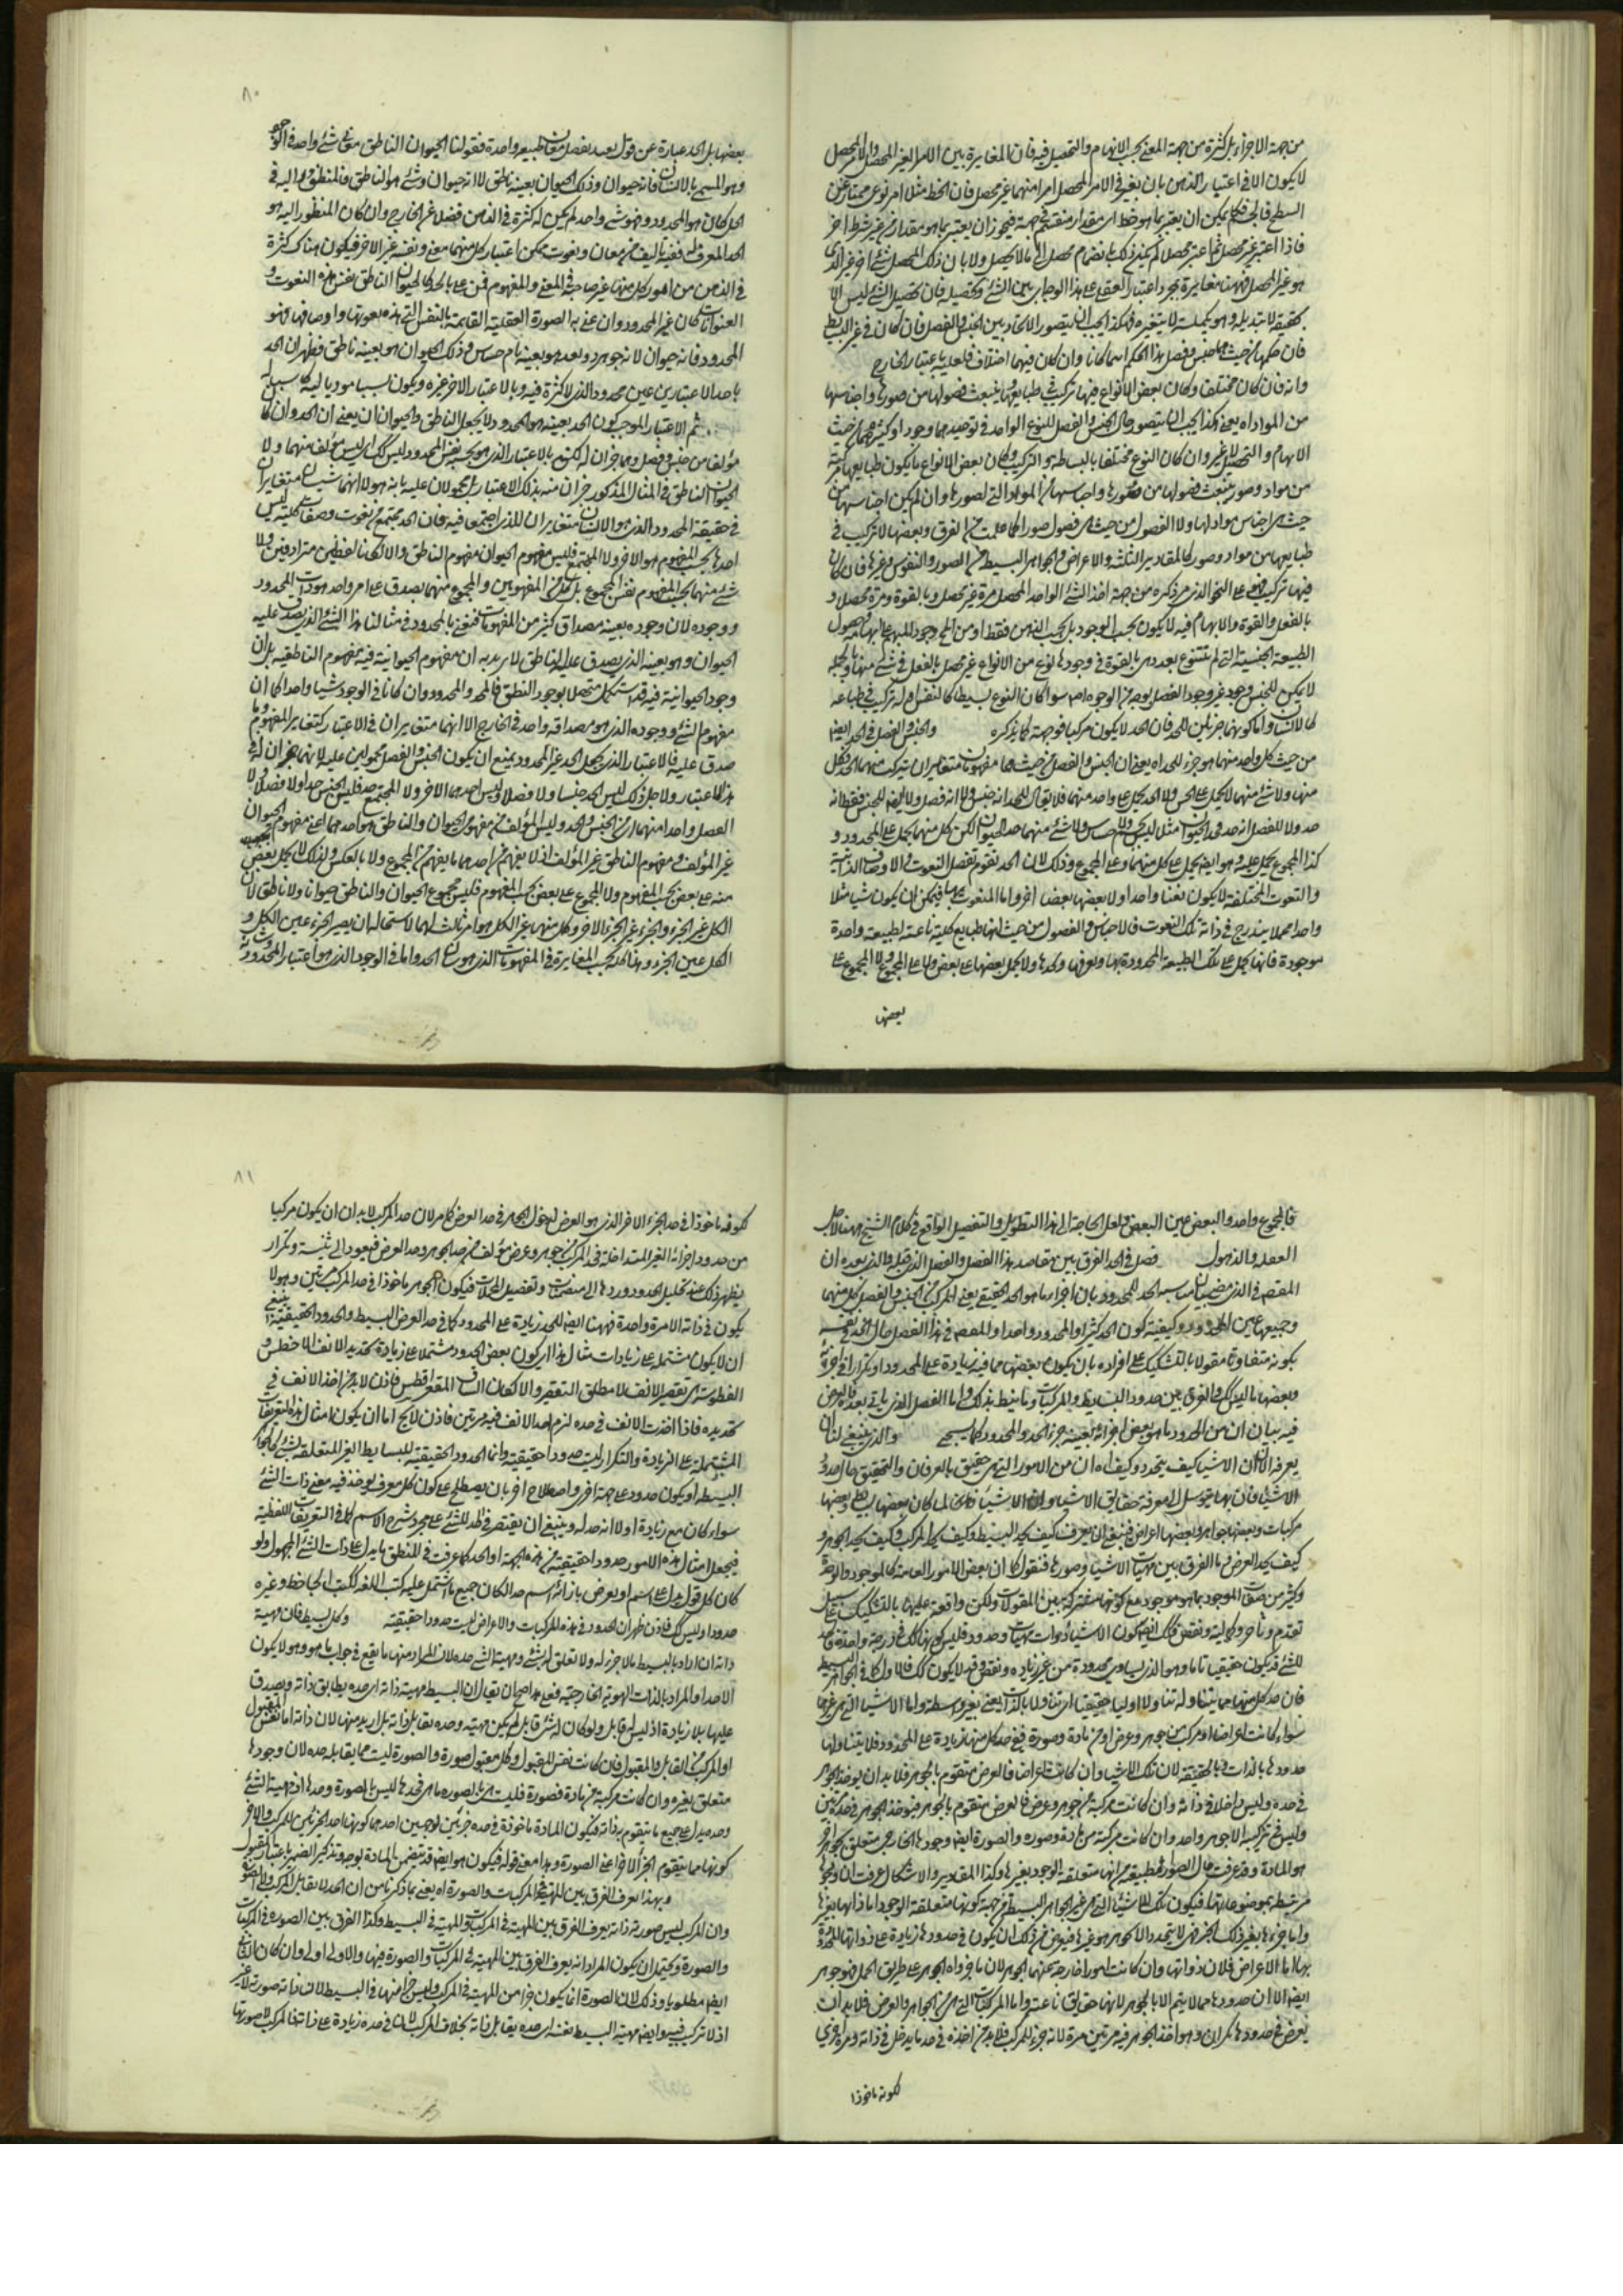 من جهة الاجزاء بل كثرة من جهة المعنى بحسب الابهام والتحصيل فيه فان المغايرة بين الامر الغير المحصل والامر المحصل
لا يكون الا في اعتبار الذهن بان يعتبر في الامر المحصل امرا منهما غير محصل فان الخط مثلا امر نوعي ممتاز عن
السطح فالجسم يمكن ان يعتبر بما هو خط اى مقدار منقسم في جهة فيجوز ان يعتبر بما هو مقدار من غير شرط اخر
فاذا اعتبر غير محصل ثم اعتبر محصلا لم يكن ذلك بانضمام محصل الى ما لا يحصل ولا بان ذلك المحصل شئ اخر غير الذى
هو غير المحصل فههنا مغايرة بمجرد اعتبار العقل على هذا الوجه اى بين الشئ وتحصيله فان تحصيل الشئ ليس الا
تحقيقه لا تبديله وهو تكميله لا تغيره فهكذا يجب ان يتصور الاتحاد بين الجنس والفصل فان كان في غير البسيط
فان حكمهما من حيث هما جنس وفصل هذا الحكم اينما كانا وان كان فيهما اختلاف فلعله باعتبار الخارج
وانه فان كان مختلفا وكان بعض الانواع فيها تركيب في طبايعها وينبعث فصولها من صورها واجناسها
من المواد اه يعنى هكذا يجب ان يتصور حال الجنس والفصل للنوع الواحد في توحيدهما وجودا وكثرتهما من حيث
الابهام والتحصل لا غير وان كان النوع مختلفا بالبساطة والتركيب وكان بعض الانواع ما يكون طبايعها مركبة
من مواد وصور ينبعث فصولها من صورها واجناسها من المواد التى لصورها وان لم يكن اجناسها من
حيث هى اجناس موادلها ولا الفصول من حيث هى فصول صورا كما علمت من الفرق وبعضها لا تركيب في
طبايعها من مواد وصور كالمقادير الثلثة والاعراض والجواهر البسيطة من الصور والنفوس وغيرها فان كان
فيها تركيب فهو على النحو الذى مر ذكره من جهة اخذ الشئ الواحد المحصل مرة غير محصل وبالقوة ومرة محصلا و
بالفعل والقوة والابهام فيه لا يكون بحسب الوجود بل بحسب الذهن فقط
الطبيعة الجنسية التى لم تتنوع بعد هى بالقوة في وجودها لنوع من الانواع غير محصل بالفعل في شئ منها وبالجملة
لا يمكن للجنس وجود غير وجود الفصل بوجه من الوجوه اصلا سواء كان النوع بسيطا كالنفس او له تركيب في طباعه
كالانسان واما كونهما جزئين للحد فان الحد لا يكون مركبا فوجهه ما يذكره والجنس والفصل في الحد ايضا
من حيث كل واحد منهما هو جزء للحد اه يعنى ان الجنس والفصل من حيث هما مفهومان متغايران يتركب منهما الحد فكل
منهما ولا شئ منهما يحمل على الحد ولا الحد يحمل على واحد منهما فلا يقال للحد انه جنس ولا انه فصل ولا ايضا للجنس فقط انه
حد ولا للفصل انه حد
كذا المجموع يحمل عليه وهو ايضا يحمل على كل منهما وعلى المجموع وذلك لان الحد يقوم بتفصيل النعوت والاوصاف الذاتية
والنعوت المختلفة لا يكون نعتا واحدا ولا بعضها بعضا اخر واما المنعوت بها فيمكن ان يكون شيئا مثلا
واحدا مجملا يندرج في ذاته تلك النعوت فالاجناس والفصول من حيث انها طبايع كلية ناعتة لطبيعة واحدة
موجودة فانها يحمل على تلك الطبيعة المحدودة بها وبعرفها وكحدها ولا يحمل بعضها على بعض ولا على المجموع ولا المجموع على
بعضها
٨٠
بعضها بل الحد عبارة عن قول يفيد تفصيل معان لطبيعة واحدة فقولنا الحيوان الناطق معان شئ واحد في الوجود
وهو المسمى بالانسان فانه حيوان وذلك الحيوان بعينه ناطق لا انه حيوان وشئ هو الناطق فالمنظور اليه في
الحد ان كان هو المحدود فهو شئ واحد لم يكن له كثرة في الذهن فضلا عن الخارج وان كان المنظور اليه هو
الحد المعرف له ففيه تاليف من معان ونعوت يمكن اعتبار كل منهما معنى ونفسه غير الاخر فيكون هناك كثرة
في الذهن من امور كل منها غير صاحبه في المعنى والمفهوم فمن عنى بالحد كالحيوان الناطق نفس هذه النعوت و
العنوانات كان غير المحدود وان عنى به الصورة العقلية القائمة بالنفس التى هذه نعوتها واوصافها فهو
المحدود فانه حيوان لانه جوهر ذو بعد هو بعينه نام حساس وذلك الحيوان هو بعينه ناطق فظهر ان الحد
باحد الاعتبارين عين محدود الذى لا كثرة فيه وبالاعتبار الاخر غيره ويكون سببا موديا اليه كاسبا له
ثم الاعتبار الموجب كون الحد بعينه هو المحدود لا يجعل الناطق والحيوان ان يعنى ان الحد وان كان
مؤلفا من جنس وفصل وهما جزءان له لكنه بالاعتبار الذى هو بحسبه نفس المحدود ليس كك اى ليس مؤلفا منهما ولا
الحيوان الناطق في المثال المذكور جزءان منه بذلك الاعتبار بل محمولان عليه بانه هو لا انهما شيئان متغايران
في حقيقة المحدود الذى هو الانسان متغايران للذى اجتمعا فيه فان الحد مجتمع من نعوت وصفات كلية ليس
احدها بحسب المفهوم هو الاخر ولا المجتمع فليس مفهوم الحيوان مفهوم الناطق والا لكانا لفظين مترادفين ولا
شئ منهما بحسب المفهوم نفس المجموع بل كل من المفهومين والمجموع منهما يصدق على امر واحد هو ذات المحدود
ووجوده لان وجوده بعينه مصداق كثير من المفهومات فنعنى بالمحدود في مثالنا هذا الشئ الذى يصدق عليه
الحيوان وهو بعينه الذى يصدق عليه الناطق لا نريد به ان مفهوم الحيوانية فيه مفهوم الناطقية بل ان
وجود الحيوانية فيه قد استكمل متحصلا بوجود النطق فالحد والمحدود وان كانا في الوجود شيئا واحدا كما ان
مفهوم الشئ ووجوده الذى هو مصداقه واحد في الخارج الا انهما متغايران في الاعتبار كتغاير المفهوم وما
صدق عليه فالاعتبار الذى يجعل الحد غير المحدود يمنع ان يكون الجنس والفصل محمولين عليه لانهما جزءان له في
هذا الاعتبار ولاجل ذلك ليس الحد جنسا ولا فصلا وليس احدهما الاخر ولا المجتمع حد فليس الجنس حدا ولا فصلا ولا
الفصل واحدا منهما اى من الجنس والحد وليس المؤلف من مفهومى الحيوان والناطق هو احدهما اعنى مفهوم الحيوان
غير المؤلف مفهوم الناطق غير المؤلف اذ لا يفهم من احدهما ما يفهم من المجموع ولا بالعكس ولذلك لا يحمل بعض
منه على بعض بحسب المفهوم ولا المجموع على بعض بحسب المفهوم فليس مجموع الحيوان والناطق حيوانا ولا ناطقا لان
الكل غير الجزء والجزء غير الجزء الاخر وكل منهما غير الكل هو امر ثالث لهما لاستحالة ان يصير الجزء عين الكل و
الكل عين الجزء وهذا كله بحسب المغايرة في المفهومات الذى هو شان الحد واما في الوجود الذى هو اعتبار المحدود
فالمجموع واحد والبعض عين البعض ولعل الحاجة الى هذا التطويل والتفصيل الواقع في كلام الشيخ ههنا لاجل
الغفلة والذهول فصل في الحد الفرق بين مقاصد هذا الفصل والفصل الذى قبله والذى بعده ان
المقصد في الذى مضى بيان مناسبة الحد للمحدود بان اجزاء ما هو الحد الحقيقى يعنى المركب من الجنس والفصل كل منهما
وجميعهما عين المحدود وكيفية كون الحد كثيرا والمحدود واحدا والمقصد في هذا الفصل حال الحد في نفسه
بكونه متفاوتا مقولا بالتشكيك على افراده بان يكون بعضها مما فيه زيادة على المحدود او تكرار في اجزائه
وبعضها ما ليس كك والفرق بين حدود البسايط والمركبات وما نيط بذلك واما الفصل الذى ياتى بعده فالغرض
فيه بيان ان من الحدود ما هو بعض اجزائه بعينه جزء الحد والمحدود كما سيجئ والذى ينبغى لنا ان
يعرفه الان ان الاشياء كيف يتحدد وكيف اه ان من الامور التى هى حقيق بالعرفان والتحقيق حال حدود
الاشياء فان بها يتوسل الى معرفة حقايق الاشياء وان الاشياء لما كان بعضها بسايط وبعضها
مركبات وبعضها جواهر وبعضها اعراض فينبغى ان يعرف كيف يحد البسيط وكيف يحد المركب وكيف يحد الجوهر و
كيف يحد العرض وما الفرق بين مهيات الاشياء وصورها فنقول كما ان بعض الامور العامة كالموجود والوحدة
وكثير من صفات الموجود بما هو موجود مع كونها مشتركة بين المقولات ولكن واقعة عليها بالتشكيك على سبيل
تقدم وتاخر وكمالية ونقص فكك ايضا كون الاشياء ذوات مهيات وحدود فليس كونها كك في درجة واحدة فحد
للشئ قد يكون حقيقيا تاما وهو الذى يساوى محدوده من غير زيادة ونقص وقد لا يكون كك فالاول كما في الجواهر البسيطة
فان حد كل منهما مما يتناوله تناولا اوليا حقيقيا اى تناولا بالذات يعنى بغير واسطة واما الاشياء التى هى غيرها
سواء كانت اعراضا او مركبة من جوهر وعرض او من مادة وصورة ففى حد كل منها زيادة على المحدود فلا يتناولها
حدودها بالذات وبالحقيقة لان تلك الاشياء وان كانت اعراضا فالعرض متقوم بالجوهر فلا بد ان يوخذ الجوهر
في حده وليس داخلا في ذاته وان كانت مركبة من جوهر وعرض فالعرض متقوم بالجوهر فيوخذ الجوهر في حده مرتين
وليس في تركيبه الا جوهر واحد وان كانت مركبة من مادة وصورة والصورة ايضا وجودها الخارجى متعلق بجوهر اخر
هو المادة وقد عرفت حال الصور الطبيعية من انها متعلقة الوجود بغيرها وكذا المقادير والاشكال عرفت ان وجودها
مرتبطة بموضوعاتها فيكون تلك الاشياء التى هى غير الجواهر البسيطة من جهة كونها متعلقة الوجود اما ذاتها بغيرها
واما جزءها بغير ذلك الجزء فهى لا يتحدد الا كما هو غيرها فيعرض من ذلك ان يكون في حدودها زيادة على ذواتها المحدودة
بها اما الاعراض فلان ذواتها وان كانت امورا خارجة عنها الجوهر لان ما جزءاه الجوهر على طريق الحمل فهو جوهر
ايضا الا ان حدودها مما لا يتم الا بالجوهر لانها حقايق ناعتة واما المركبات التى هى من الجواهر والعرض فلا بد ان
يعرض في حدودها تكرار وهو اخذ الجوهر فيه مرتين مرة لانه جزء للمركب فلا بد من اخذه في حده ما يدخل في ذاته ومرة اخرى
لكونه ماخوذا
٨١
لكونه ماخوذا في حد الجزء الاخر الذى هو العرض لدخول الجوهر في حد العرض كما مر لان حد المركب لا بد ان يكون مركبا
من حدود اجزائه الغير المتداخلة فحد المركب من جوهر وعرض مؤلف من حد الجوهر وحد العرض فيعود الى تثنية وتكرار
يظهر ذلك عند تحليل الحدود وردها الى مضمنات وتفصيل المجملات فيكون الجوهر ماخوذا في حد المركب مرتين وهو لا
يكون في ذاته الا مرة واحدة فههنا ايضا للحد زيادة على المحدود كما في حد العرض البسيط والحدود الحقيقية ينبغى
ان لا يكون مشتملة على زيادات مثال هذا اى كون بعض الحدود مشتملا على زيادة تحديد الانف الافطس و
الفطوسة هى تقعير الانف لا مطلق التقعير والا لكان الساق المقعر افطس فاذن لا بد من اخذ الانف في
تحديده فاذا اخذت الانف في حده لزم اخذ الانف فيه مرتين فاذن لا يخ اما ان يكون امثال هذه التعريفات
المشتملة على الزيادة والتكرار ليست حدودا حقيقية وانما الحدود الحقيقية للبسايط الغير المتعلقة بشئ كالجواهر
البسيطة او يكون حدودا على جهة اخرى واصطلاح اخر بان يصطلح على كون كل معرف يوخذ فيه معنى ذات الشئ
سواء كان مع زيادة او لا انه حد له وينبغى ان يقتصر في الحد للشئ على مجرد شرح الاسم كما في التعريفات اللفظية
فيجعل امثال هذه الامور حدودا حقيقية من هذه الجهة او الحد كما عرفت في المنطق ما يدل على ذات الشئ المجهول ولو
كان كل قول يدل على اسم او يعرض بازائه اسم حد لكان جميع ما اشتمل عليه كتب اللغة ككتب الجاحظ وغيره
حدودا وليس كك فاذن ظهر ان الحدود في هذه المركبات والاعراض ليست حدودا حقيقية وكل بسيط فان مهيته
ذاته ان اراد بالبسيط ما لا جزء له ولا تعلق له بشئ ومهية الشئ حده لان المراد منها ما يقع في جواب ما هو وهو لا يكون
الا حدا والمراد بالذات الهوية الخارجية فمع هذا صح ان يقال ان البسيط مهيته ذاته اى حده يطابق ذاته ويصدق
عليها بلا زيادة اذ ليس له قابل ولو كان له شئ قابل لم يكن مهيته وحده تقابل ذاته بل ازيد منها لان ذاته اما نفس المقبول
او المركب من القابل والمقبول فان كانت نفس المقبول وكل مقبول صورة والصورة ليست مما يقابله حده لان وجودها
متعلق بغيره وان كانت مركبة من مادة فصورة فليست هى بالصورة ما هى فحدها ليس بالصورة وحدها اذ مهية الشئ
وحده يدل على جميع ما يتقوم به ذاته فيكون المادة ماخوذة في حده جزئين لوجهين احدهما كونها احد الجزئين للمركب والاخر
كونها مما يتقوم الجزء الاخر اعنى الصورة وهذا معنى قوله فيكون هو ايضا قد يتضمن المادة بوجه وتذكير الضمير باعتبار المقبول
وبهذا يعرف الفرق بين المهية في المركبات والصورة اه يعنى بما ذكرنا من ان الحد لا يقابل المركب ولا الصورة
وان المركب ليس صورته ذاته يعرف الفرق بين المهية في المركبات والمهية في البسيط وكذا الفرق بين الصورة في المركبات
والصورة ويحتمل ان يكون المراد انه يعرف الفرق بين المهية في المركبات والصورة فيها والاولى اولى وان كان الثانى
ايضا مطلوبا وذلك لان الصورة انما يكون جزءا من المهية في المركب وليس جزءا منها في البسيط لان ذاته صورته لا غير
اذ لا تركيب فيه وايضا مهية البسيط نفسه اى حده يقابل ذاته بخلاف المركب لان في حده زيادة على ذاته فالمركب لا صورتها